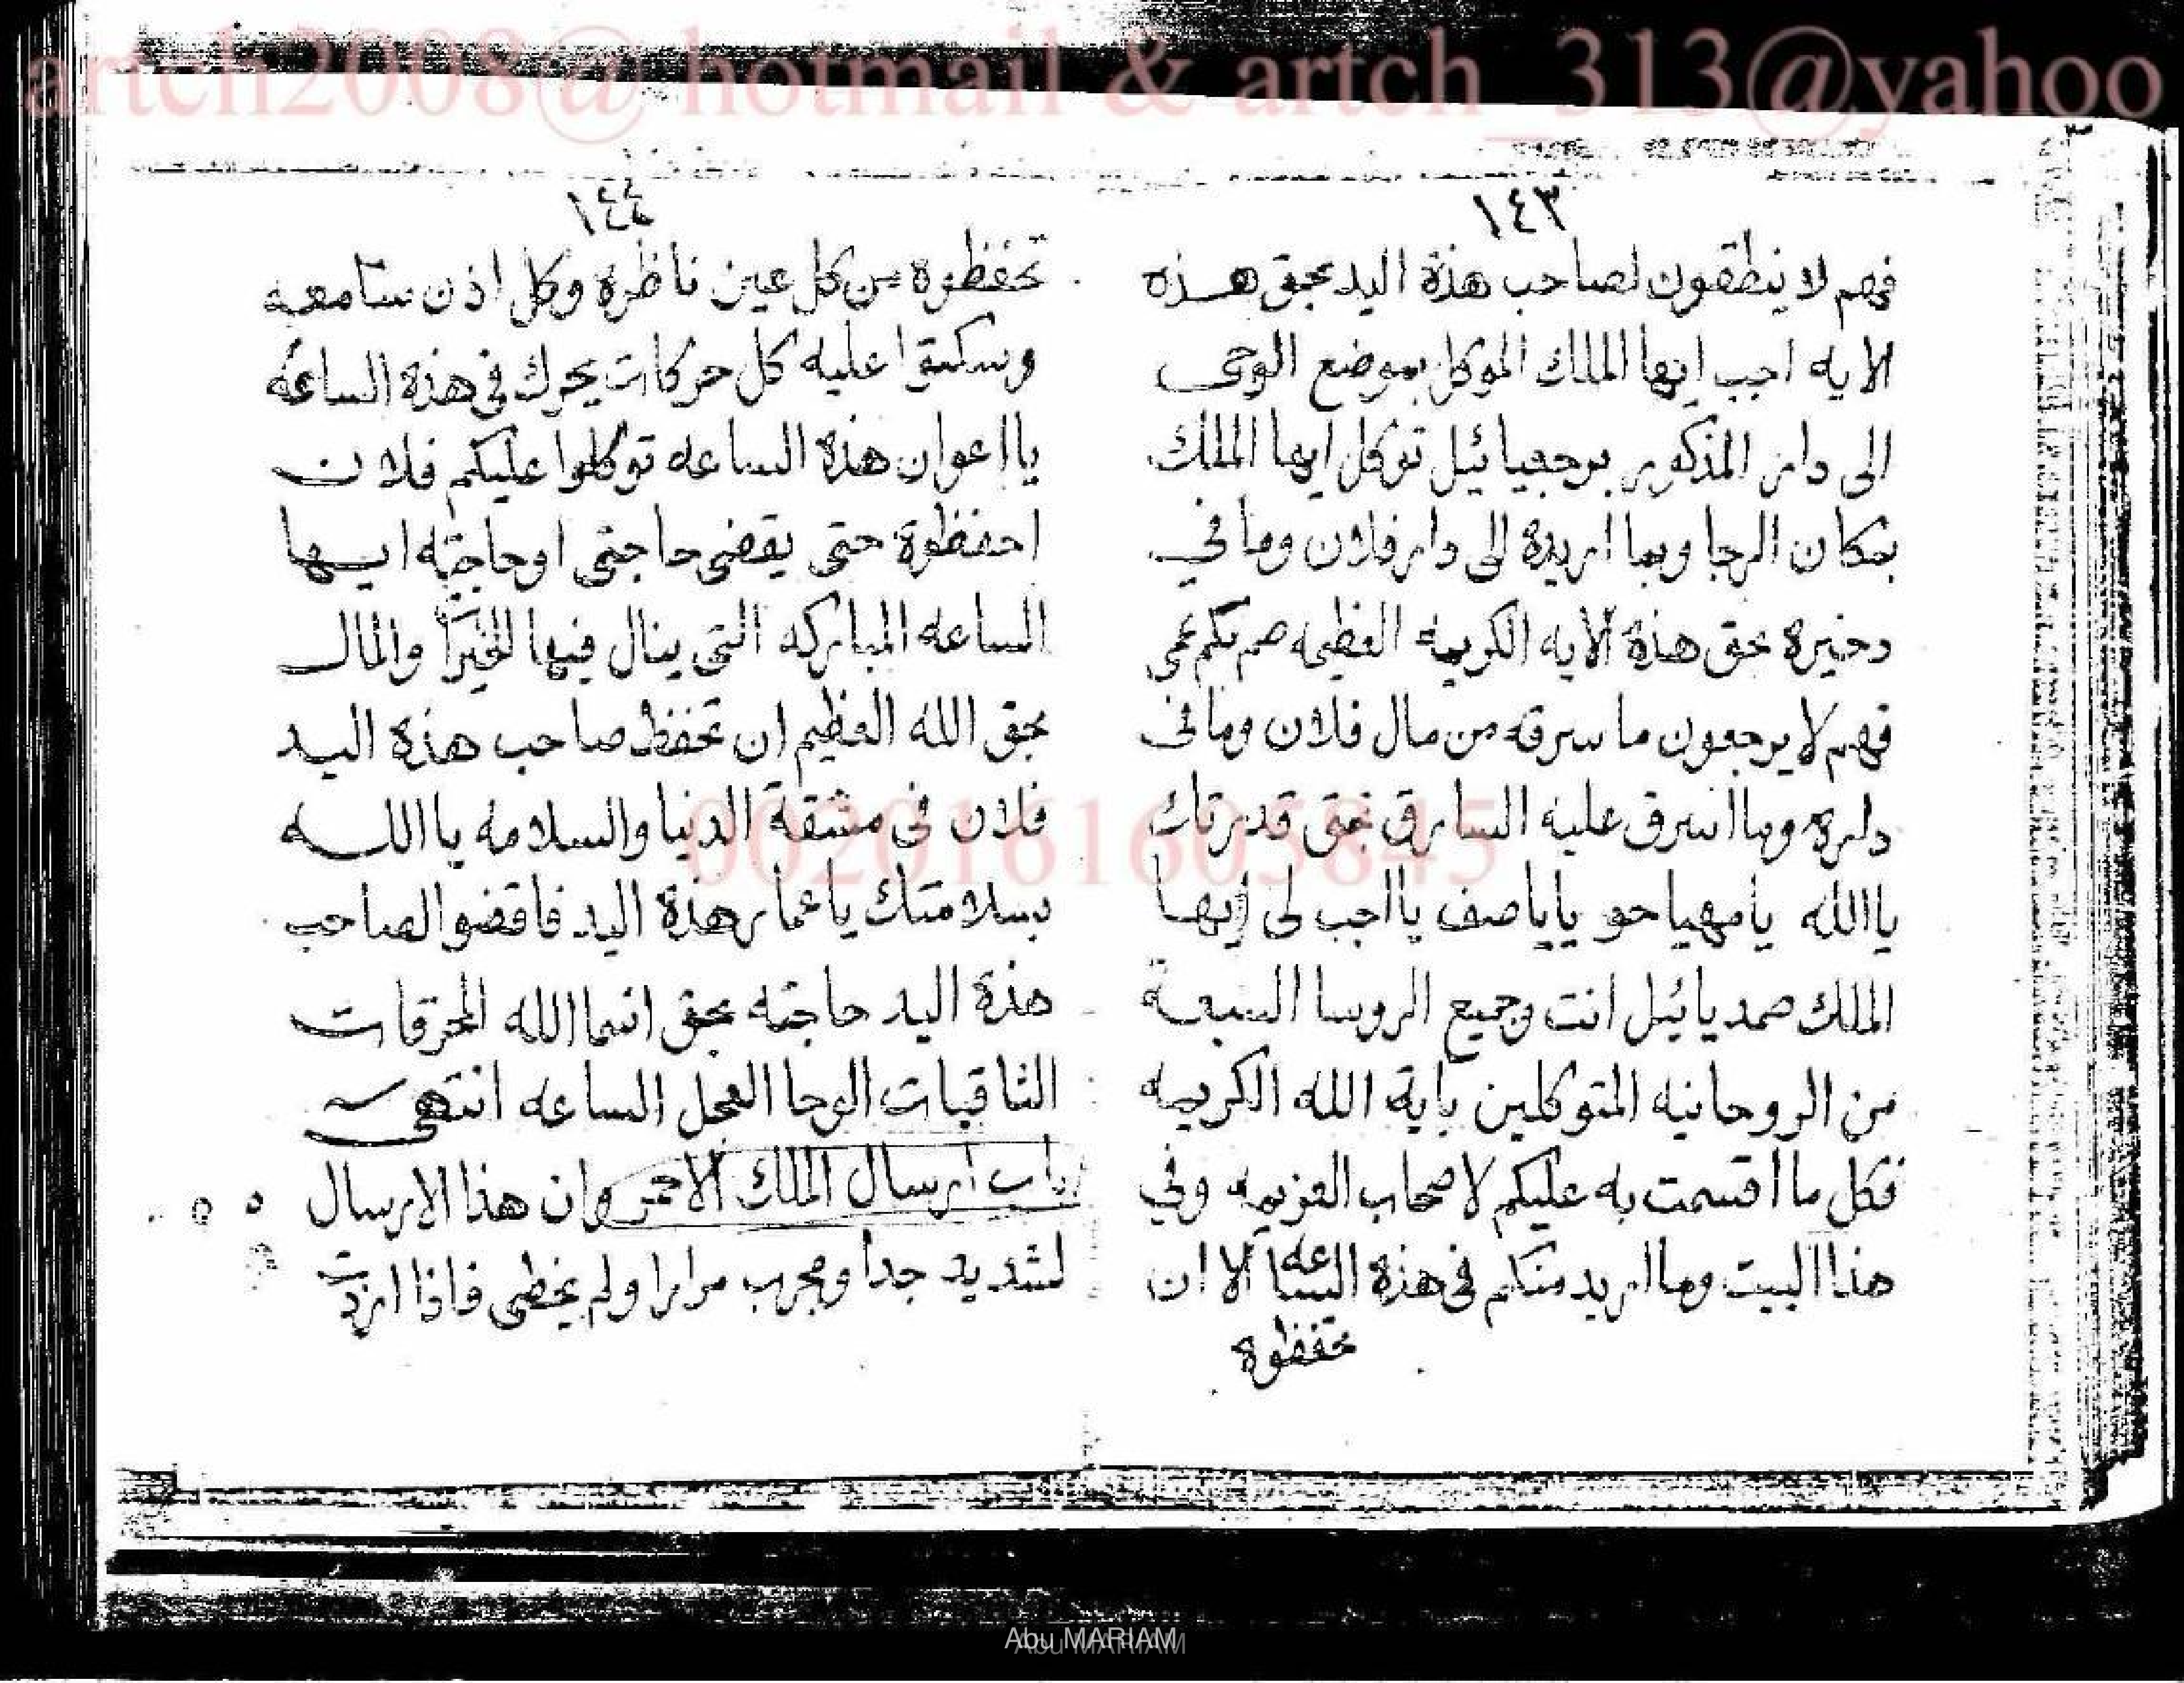 artch2008@ hotmail & artch_313@yahoo
١٤٣
فهم لا ينطقون لصاحب هذه اليد بحق هذه
الايه اجب ايها الملك الموكل بموضع الوحى
الى دار المذكور برجعيائيل توكل ايها الملك
بمكان الرجا وبما اريده الى دار فلان وما في
دخيرة بحق هذه الايه الكريمه العظيمه صم بكم عمى
فهم لا يرجعون ما سرقه من مال فلان وما فى
داره وما اسرق عليه السارق بحق قدرتك
يا الله يا مهيا حو يا ياصف يا اجب لى ايها
الملك صمديائيل انت وجميع الروسا السبعة
من الروحانيه المتوكلين باية الله الكريمه
فكل ما اقسمت به عليكم لاصحاب العزيمه وفي
هذا البيت وما اريد منكم في هذه الساعه الا ان
تحفظوه
١٤٤
تحفظوه من كل عين ناظره وكل اذن سامعه
وسكتوا عليه كل حركات يحرك في هذه الساعه
يا اعوان هذه الساعه توكلوا عليكم فلان
احفظوه حتى يقضى حاجتى او حاجته ايها
الساعه المباركه التى ينال فيها الخيرا والمال
بحق الله العظيم ان تحفظ صاحب هذه اليد
فلان فى مشقة الدنيا والسلامه يا الله
بسلامتك يا عمار هذه اليد فاقضوا لصاحب
هذه اليد حاجته بحق اسما الله المحرقات
الثاقبات الوحا العجل الساعه انتهى
باب ارسال الملك الاحمر وان هذا الارسال
لشديد جدا ومجرب مرارا ولم يخطى فاذا اردت
0020161605845
Abu MARIAM